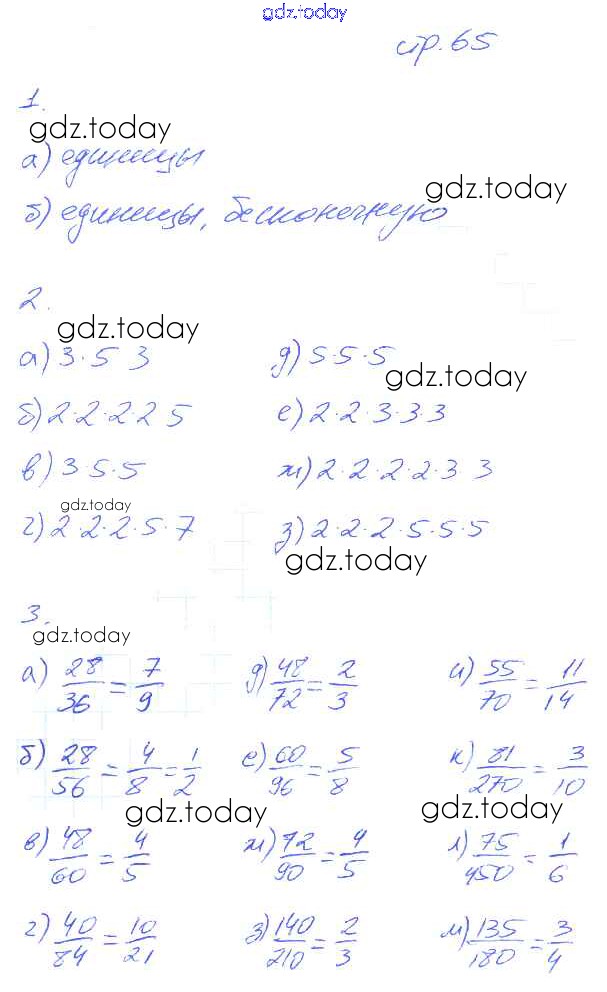 gdz.today
стр. 65
1.
gdz.today
а) единицы
gdz.today
б) единицы, бесконечную
2.
gdz.today
а) 3·5 3 д) 5·5·5
gdz.today
б) 2·2·2·2 5 е) 2·2·3·3·3
в) 3·5·5 ж) 2·2·2·2·3 3
gdz.today
г) 2·2·2·5·7 з) 2·2·2·5·5·5
gdz.today
3.
gdz.today
а) 28/36 = 7/9 д) 48/72 = 2/3 и) 55/70 = 11/14
б) 28/56 = 4/8 = 1/2 е) 60/96 = 5/8 к) 81/270 = 3/10
gdz.today gdz.today
в) 48/60 = 4/5 ж) 72/90 = 4/5 л) 75/450 = 1/6
г) 40/84 = 10/21 з) 140/210 = 2/3 м) 135/180 = 3/4